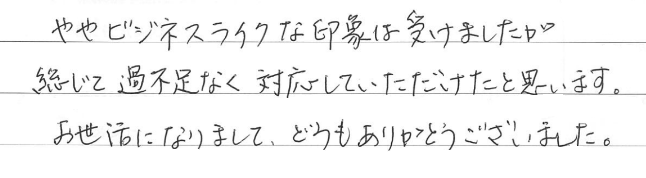 ややビジネスライクな印象は受けましたが
総じて過不足なく対応していただけたと思います。
お世話になりまして、どうもありがとうございました。